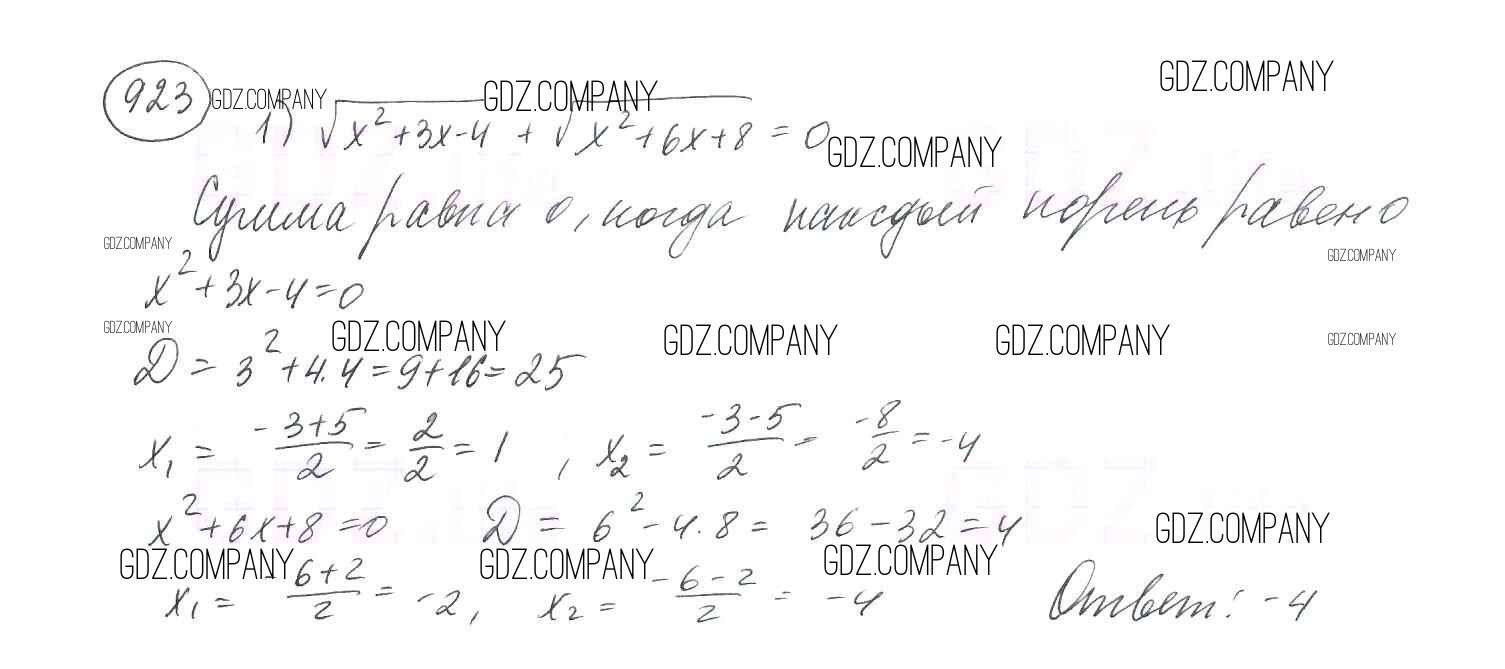 923 GDZ.COMPANY GDZ.COMPANY GDZ.COMPANY
1) √(x²+3x-4) + √(x²+6x+8) = 0 GDZ.COMPANY
Сумма равна 0, когда каждый корень равен 0
GDZ.COMPANY GDZ.COMPANY
x²+3x-4=0
GDZ.COMPANY GDZ.COMPANY GDZ.COMPANY GDZ.COMPANY GDZ.COMPANY
D = 3²+4·4=9+16=25
x₁ = (-3+5)/2 = 2/2 = 1, x₂ = (-3-5)/2 = -8/2 = -4
x²+6x+8=0 D = 6²-4·8 = 36-32=4 GDZ.COMPANY
GDZ.COMPANY GDZ.COMPANY GDZ.COMPANY
x₁ = (-6+2)/2 = -2, x₂ = (-6-2)/2 = -4 Ответ: -4